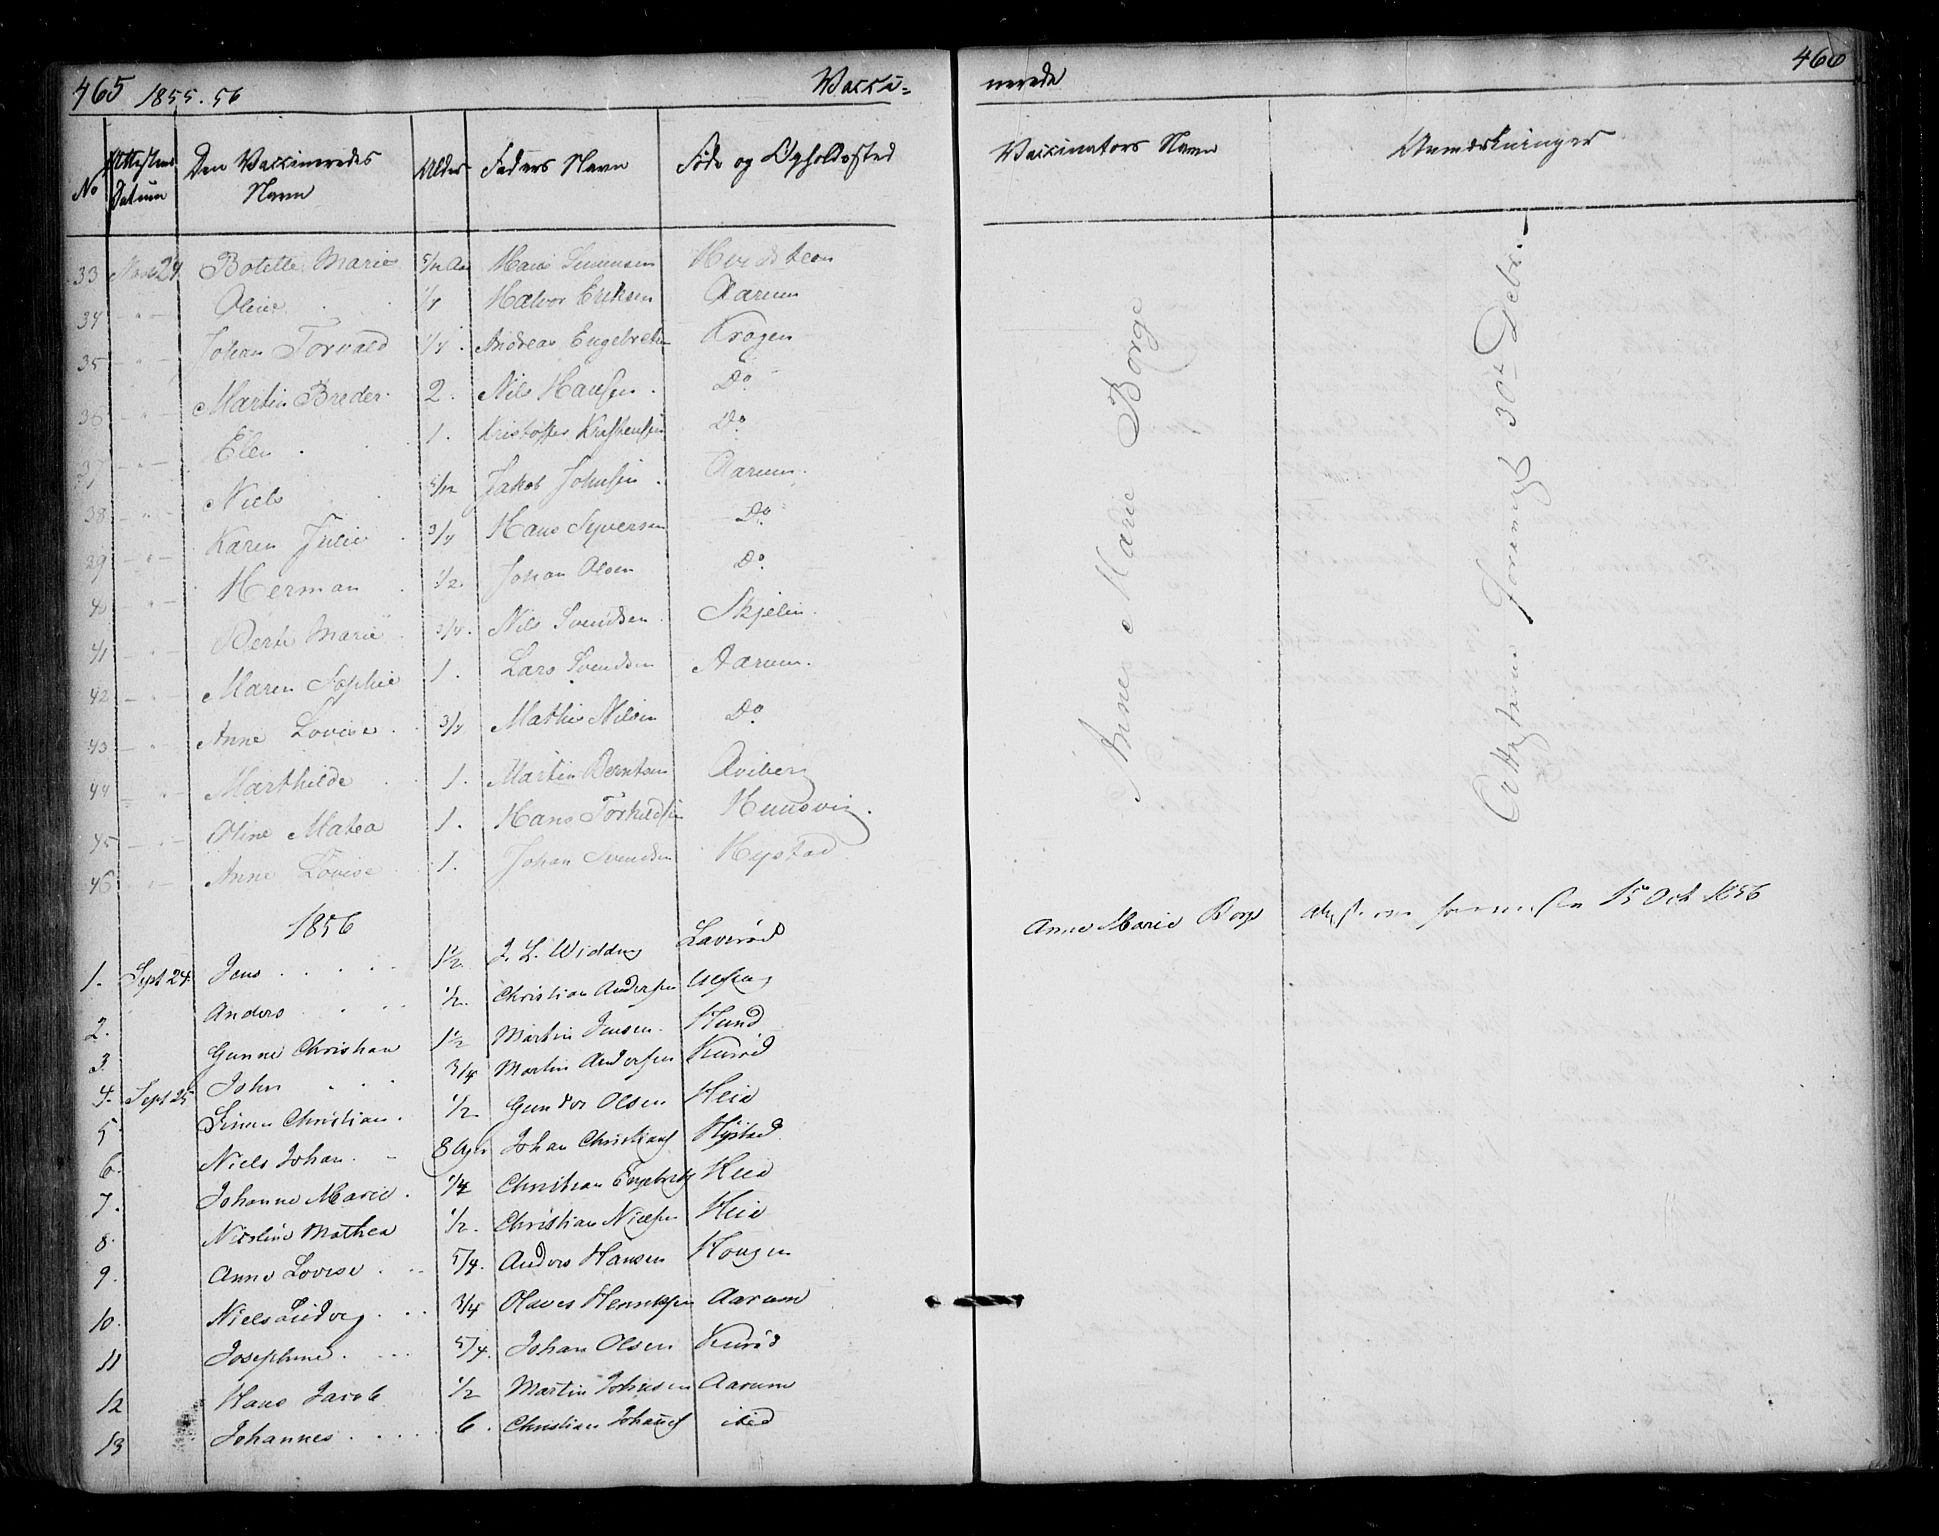 465 1855.56 Vacci-
No Attestens Datum Den Vaccineredes Navn Alder Faders Navn Føde og Opholdssted
33 24 Botette Marie 5/12 Aar Hans
34 - " - Oline 1/4 Halvor Eriksen Aarum
35 - " - Johan Torvald 1/4 Andreas Engebretsen Krogen
36 - " - Martin Breder 2. Nils Hansen Do
37 - " - Elen 1. Kristoffer Do
38 - " - Niels 5/12 Jakob Johnsen Aarum
39 - " - Karen Julie 3/4 Hans Syversen Do
40 - " - Herman 1/2. Johan Olsen Do
41 - " - Berte Marie 3/4. Nils Svendsen Skjelin
42 - " - Maren Sophie 1. Lars Svendsen Aarum.
43 - " - Anne Lovise 3/4 Mathis Nilsen Do
44 - " - Marthilde 1. Martin Berntsen
45 - " - Oline Matea 1. Hans Torkildsen
46 - " - Anne Lovise 1. Johan Svendsen Hystad
1856
1. Sept 24. Jens 1½ J. L. Widding Laverød
2. Anders 1/2. Christian Andersen
3. Gunne Christian 1½ Martin Jensen. Hund
4. John 3/4 Martin Andersen Kurød
5. Sept 25 Simen Christian. 1/2 Gunder Olsen Heia
6. Niels Johan. 8 Johan Christians Hystad
7. Johanne Marie. 1/4 Christian Engebrets Heia
8. Nicoline Mathea 1/2. Christian Nielsen Heia
9. Anne Lovise 5/4. Anders Hansen Hougen
10. Niels Ludvig 3/4 Olaves Henriksen Aarum
11 Josephine. 5/4. Johan Olsen Kurød
12 Hans Jacob 1/2 Martin Johnsen Aarum
13 Johannes 6. Christian Johans
nerede 466
Vaccinators Navn Anmærkninger
Anne Marie Borge
Attesterne 30te Debr.
Anne Marie Borge 15 Oct 1856